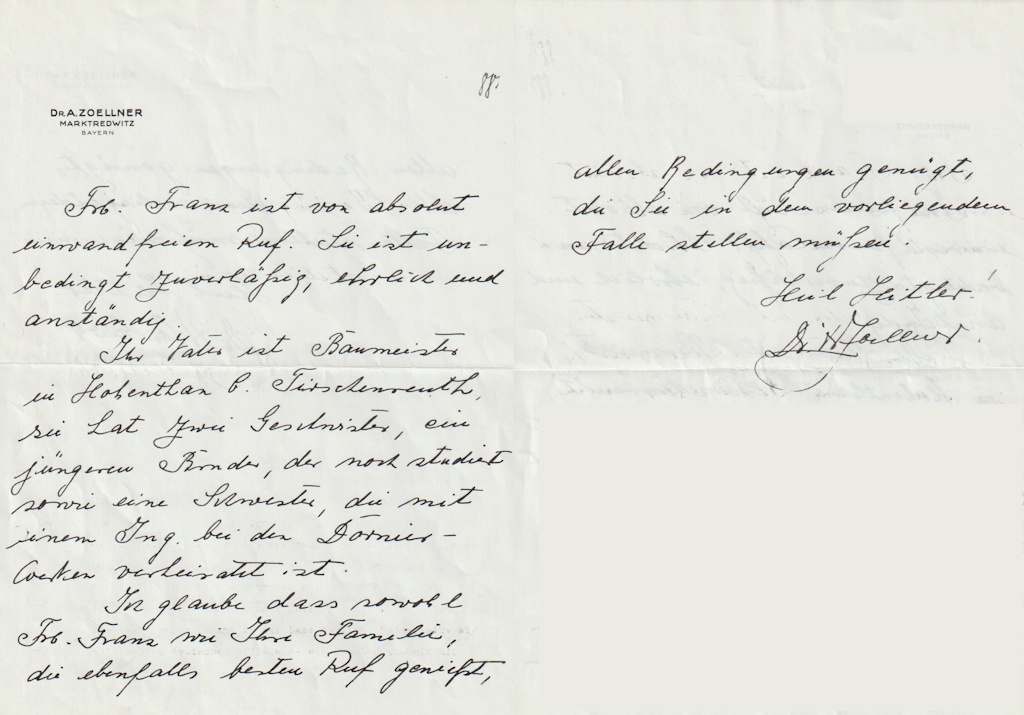 DR. A. ZOELLNER
MARKTREDWITZ
BAYERN
Frl. Franz ist von absolut
einwandfreiem Ruf. Sie ist un-
bedingt zuverläßig, ehrlich und
anständig.
Ihr Vater ist Baumeister
in Hohenthan b. Tirschenreuth,
sie hat zwei Geschwister, ein
jüngeren Bruder, der noch studiert
sowie eine Schwester, die mit
einem Ing. bei den Dornier-
werken verheiratet ist.
Ich glaube dass sowohl
Frl. Franz wie Ihre Familie,
die ebenfalls besten Ruf genießt,
allen Bedingungen genügt,
die Sie in dem vorliegendem
Falle stellen müßen.
Heil Hitler!
Dr. A. Zoellner.